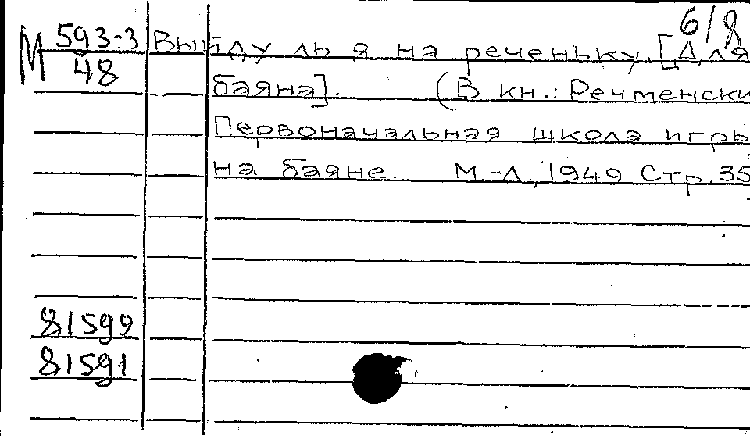 6/8
М 593-3 Выйду ль я на реченьку. [Для
48 баяна]. (В кн.: Речменски
Первоначальная школа игры
на баяне. М-Л, 1949 Стр. 35
81599
81591